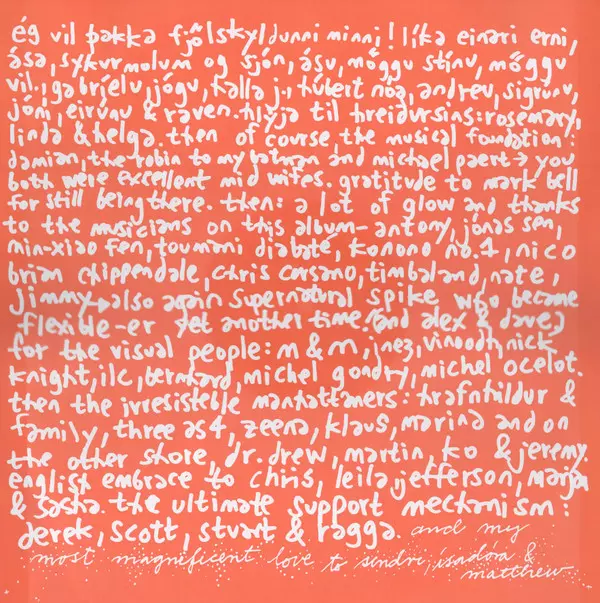 ég vil þakka fjölskyldunni minni! líka einari erni,
ása, sykurmolum og sjón, ásu, möggu stínu, möggu
vil., gabríelu, jógu, halla j., húbert nóa, andreu, sigrúnu,
jóni, eirúnu & raven. hlýja til hreidursins: rosemary,
linda & helga. then of course the musical foundation:
damian, the robin to my batman and michael paert → you
both were excellent mid wifes. gratitude to mark bell
for still being there. then: a lot of glow and thanks
to the musicians on this album - antony, jónas sen,
min-xiao fen, toumani diabate, konono no.1, nico
brian chippendale, chris corsano, timbaland, nate,
jimmy → also again supernatural spike who became
flexible-er yet another time. (and alex & dave)
for the visual people: m & m, inez, vinoodh, nick
knight, ilc, bernhard, michel gondry, michel ocelot.
then the irresisteble manhattaners: hrafnhildur &
family, three as 4, zeena, klaus, marina and on
the other shore, dr. drew, martin, ko & jeremy.
english embrace to chris, leila, jefferson, marjan
& sasha. the ultimate support mechanism:
derek, scott, stuart & ragga. and my
most magnificent love to sindri, ísadóra &
matthew